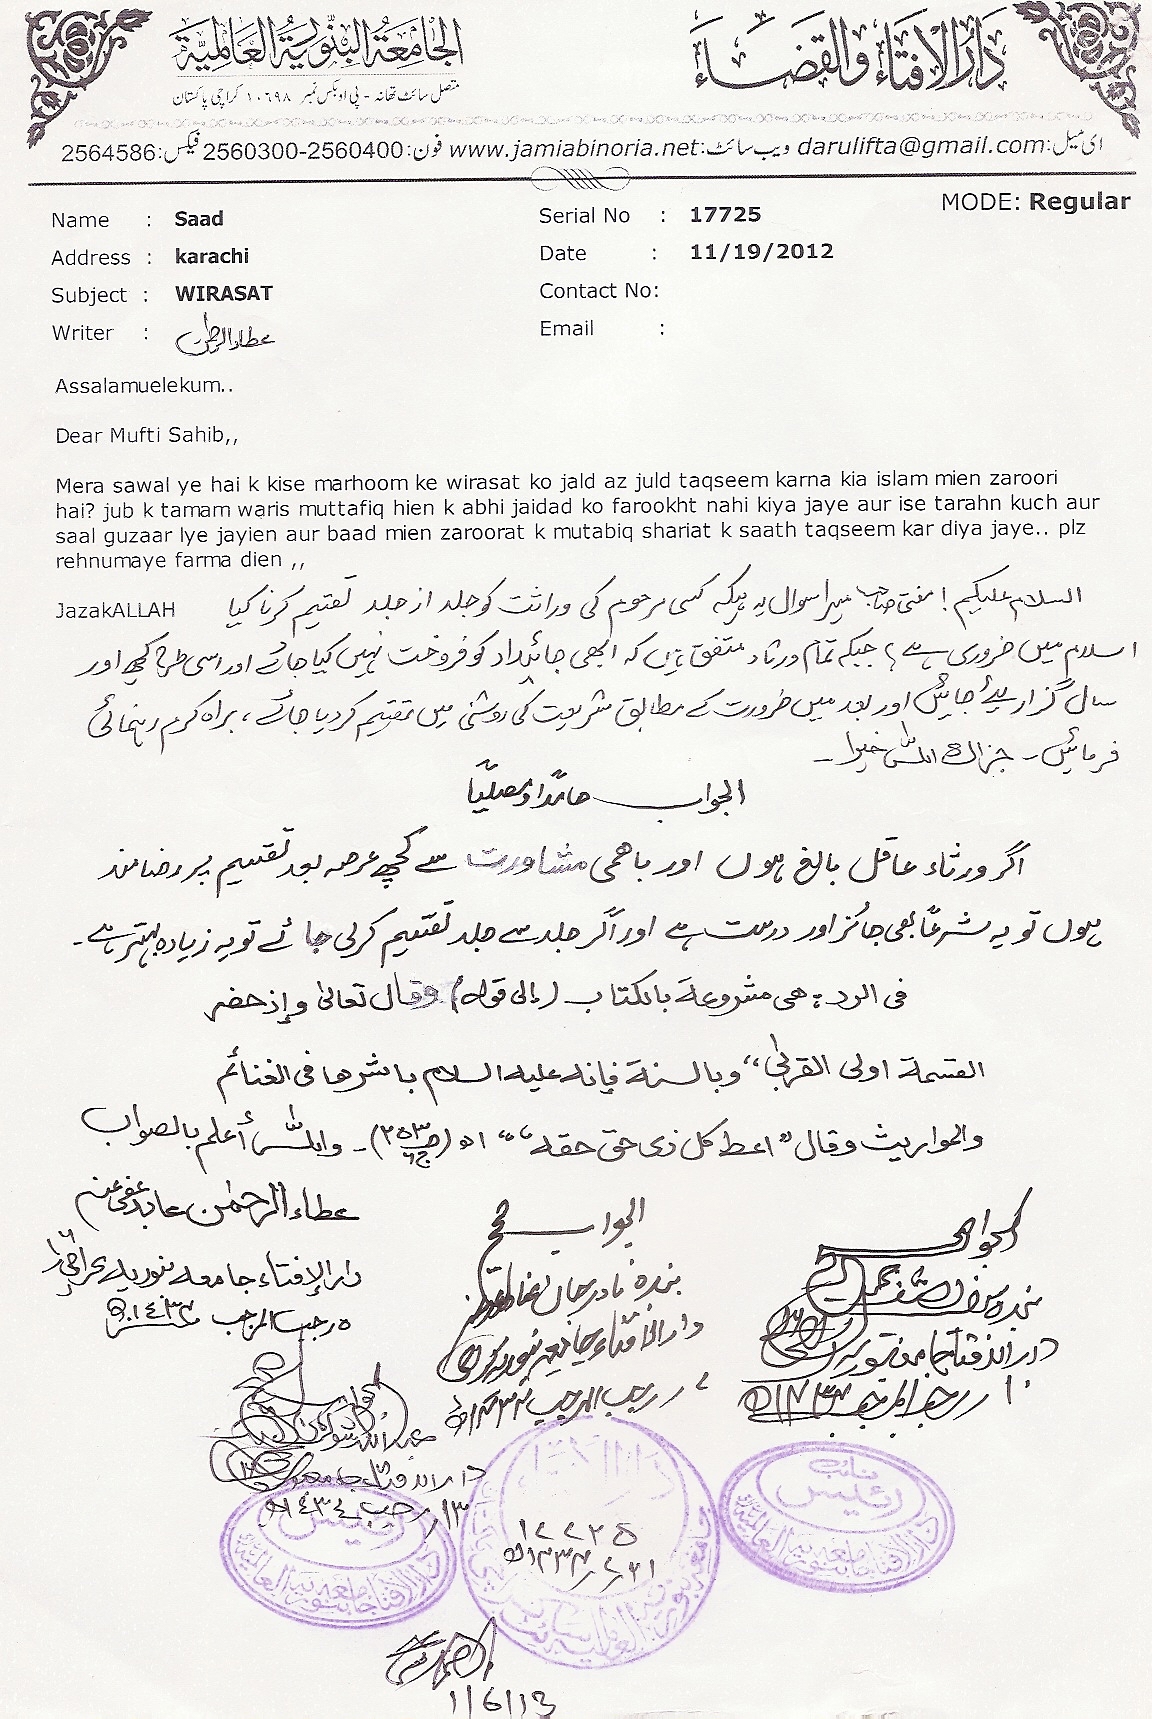 دارُ الافتاء والقضاء
الجامعة البنورية العالمية
متصل سائٹ تھانہ - پی او بکس نمبر ١٠٦٩٨ کراچی پاکستان
ای میل: darulifta@gmail.com ویب سائٹ: www.jamiabinoria.net فون: 2560300-2560400 فیکس: 2564586
MODE: Regular
Name : Saad
Serial No : 17725
Address : karachi
Date : 11/19/2012
Subject : WIRASAT
Contact No:
Writer : عطاءالرحمٰن
Email :
Assalamuelekum..
Dear Mufti Sahib,,
Mera sawal ye hai k kise marhoom ke wirasat ko jald az juld taqseem karna kia islam mien zaroori
hai? jub k tamam waris muttafiq hien k abhi jaidad ko farookht nahi kiya jaye aur ise tarahn kuch aur
saal guzaar lye jayien aur baad mien zaroorat k mutabiq shariat k saath taqseem kar diya jaye.. plz
rehnumaye farma dien ,,
JazakALLAH
السلام علیکم! مفتی صاحب میرا سوال یہ ہیکہ کسی مرحوم کی وراثت کو جلد از جلد تقسیم کرنا کیا
اسلام میں ضروری ہے؟ جبکہ تمام ورثاء متفق ہیں کہ ابھی جائیداد کو فروخت نہیں کیا جائے اور اسی طرح کچھ اور
سال گزار لیے جائیں اور بعد میں ضرورت کے مطابق شریعت کی روشنی میں تقسیم کر دیا جائے، براہ کرم رہنمائی
فرمائیں۔ جزاک اللہ خیرا۔
الجواب حامدًا ومصلیًا
اگر ورثاء عاقل بالغ ہوں اور باھمی مشاورت سے کچھ عرصہ بعد تقسیم پر رضامند
ہوں تو یہ شرعاً بھی جائز اور درست ہے اور اگر جلد سے جلد تقسیم کرلی جائے تو یہ زیادہ بہتر ہے۔
فی الرد: ھی مشروعة بالکتاب (إلی قوله) وقال تعالیٰ وإذ حضر
القسمة اولی القربیٰ“ وبالسنة فإنه علیه السلام باشرھا فی الغنائم
والمواریث وقال ”اعط کل ذی حق حقه“ اھ (ج٦ ص٢٥٣)۔ واللہ أعلم بالصواب
عطاء الرحمٰن عابد عفی عنہ
دار الإفتاء جامعہ بنوریہ کراچی ١٦
٥ رجب المرجب ١٤٣٤ھ
الجواب صحیح
بندہ نادر جان
دار الافتاء جامعہ بنوریہ کراچی
٧ رجب المرجب ١٤٣٤ھ
الجواب صحیح
بندہ سیف اللہ جمیل
دار الافتاء جامعہ بنوریہ
١٠ رجب المرجب ١٤٣٤ھ
الجواب صحیح
عبداللہ شوکت
دار الافتاء جامعہ بنوریہ
١٣ رجب ١٤٣٤ھ
رئیس
دار الافتاء جامعہ بنوریہ العالمیہ
دار الافتاء
١٧٧٢٥
٢١/٧/١٤٣٤ھ
نائب
رئیس
دار الافتاء جامعہ بنوریہ العالمیہ
1/6/13